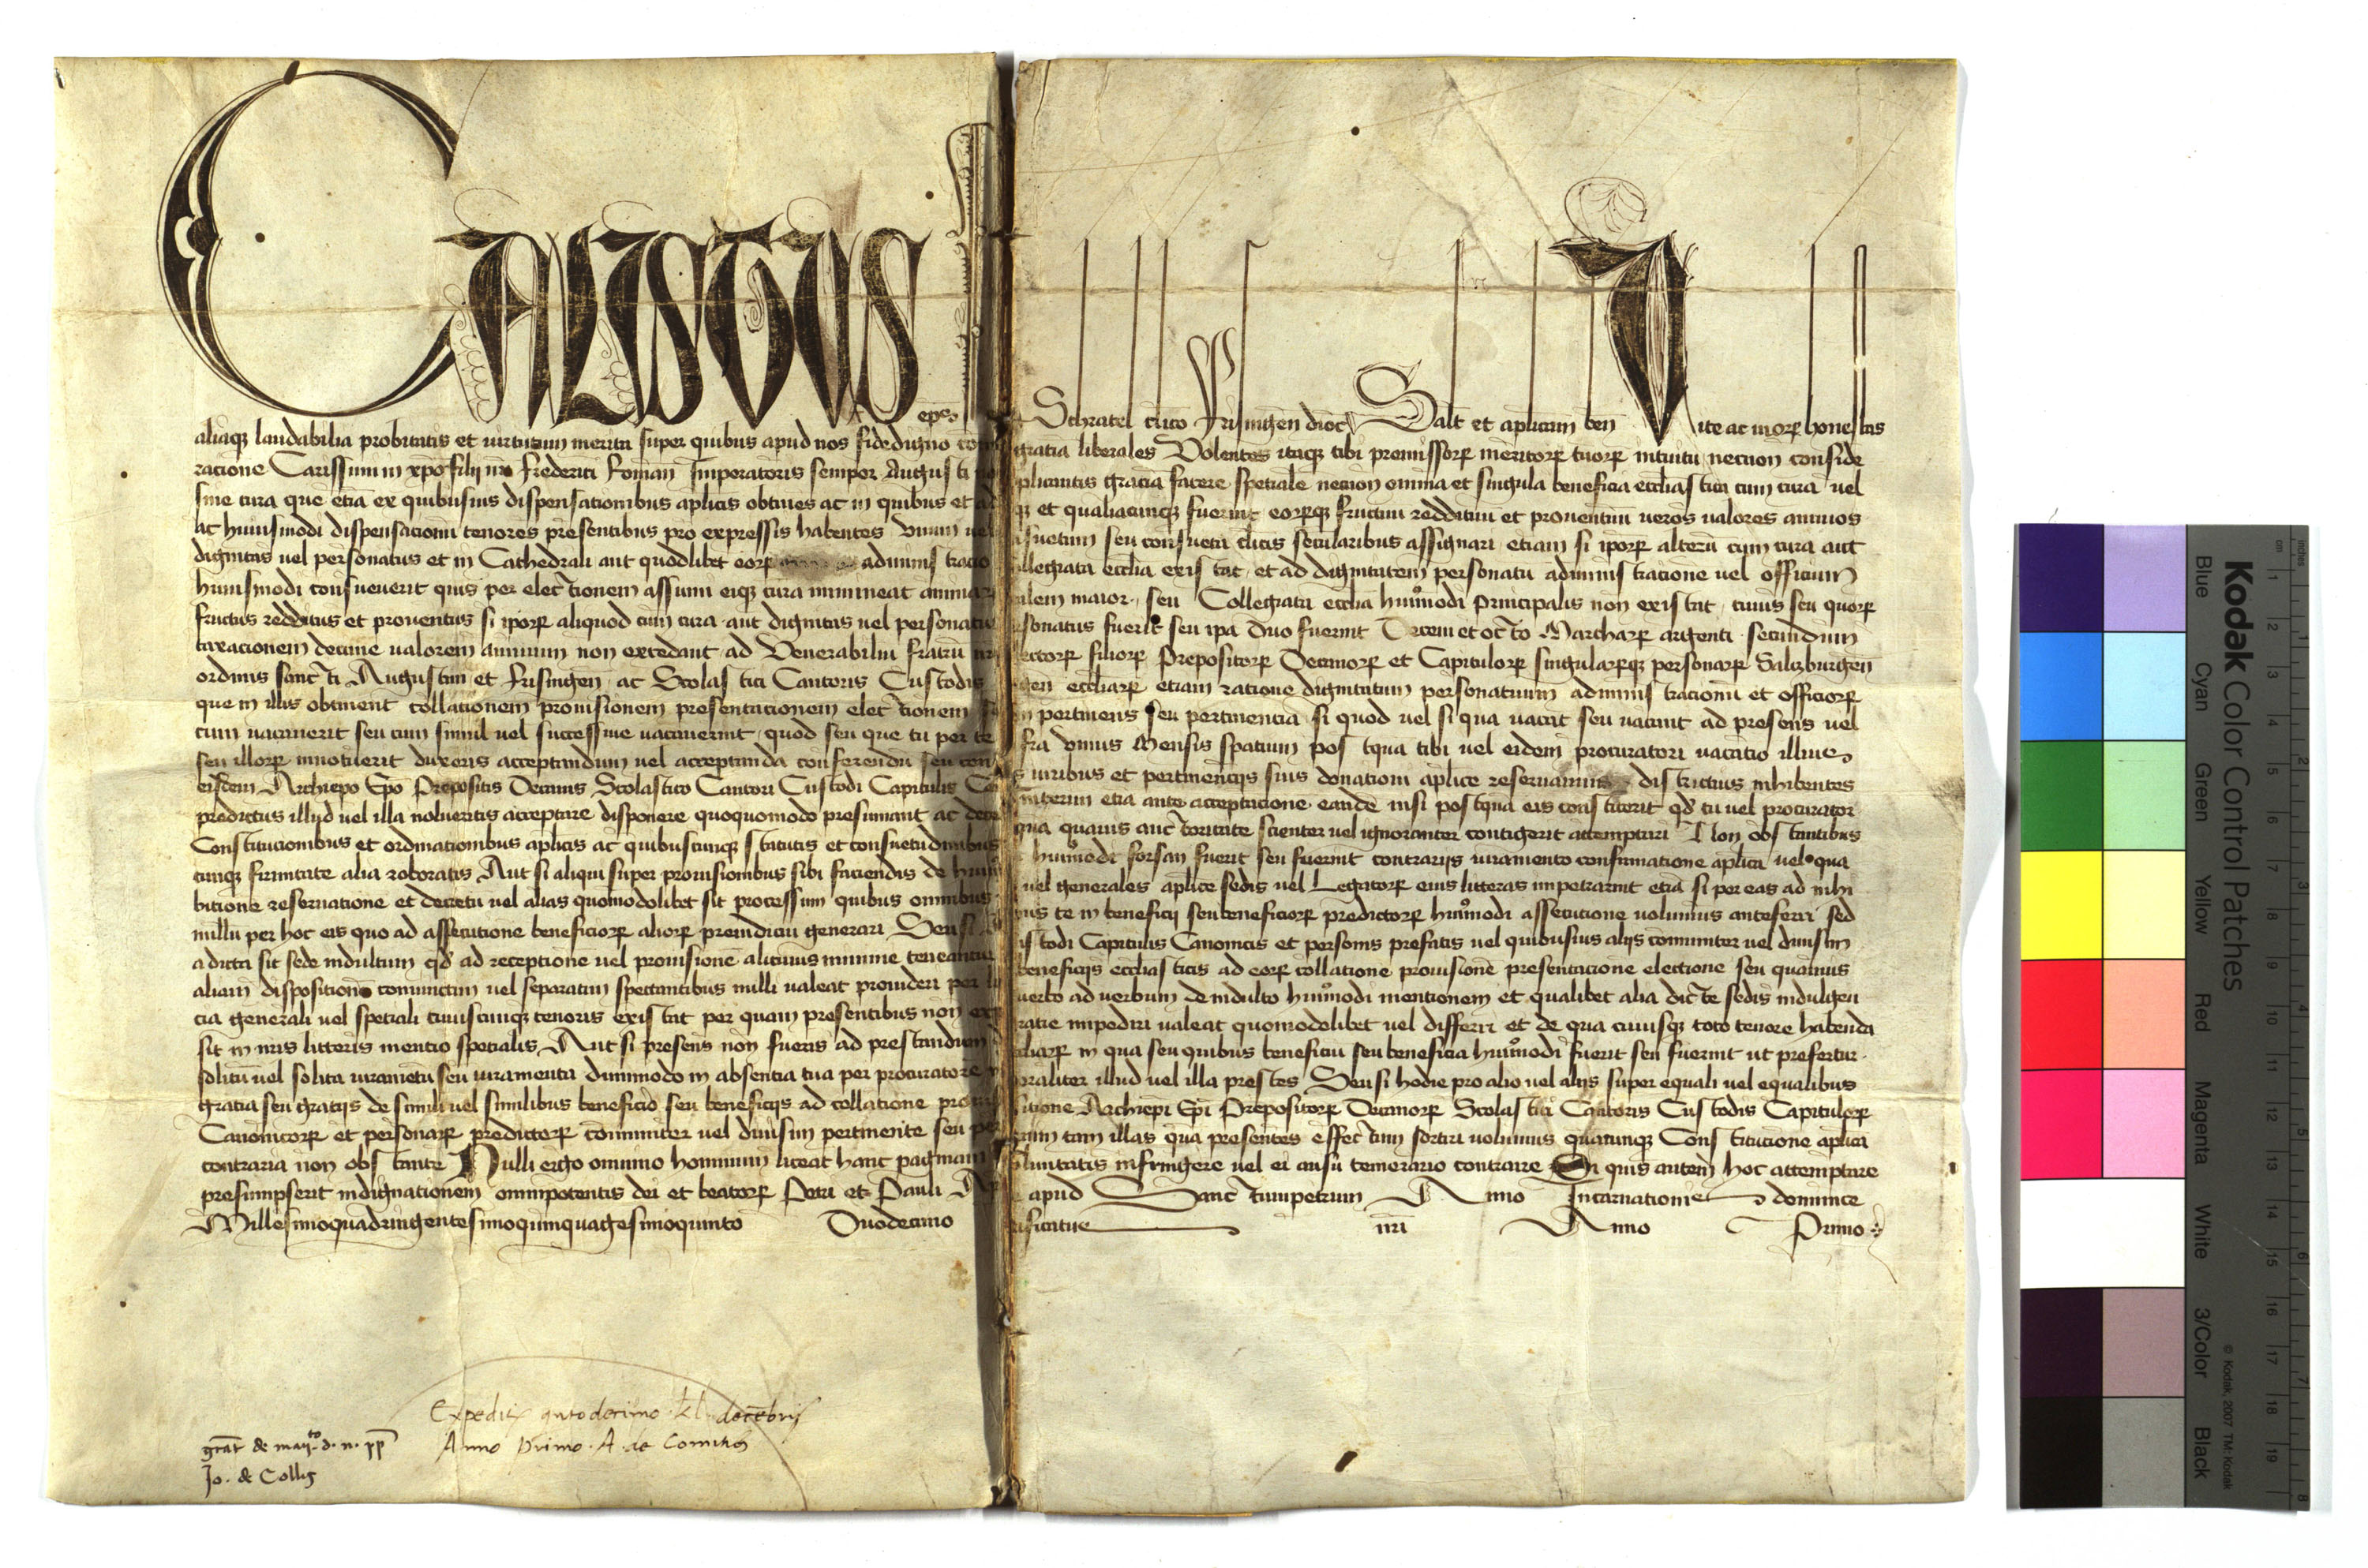 CALISTUS epc̄s Schratel clico Frisingen̄ dioc̄ Salt̄ et aplicam ben̄ Vite ac moꝝ honestas
aliaqꝫ laudabilia probitatis et uirtutum merita super quibus apud nos fidedigno gratia liberales Volentes itaqꝫ tibi premissoꝝ meritoꝝ tuoꝝ intuitu necnon conside
racione Carissimi in xp̄o filij nr̄i Frederici Roman̄ Imperatoris semper Augusti plicantis graciā facere spetialē necnon omnia et singula beneficia ecclīastica cum cura uel
sine cura que etiā ex quibusuis dispensationibus aplicis obtines ac in quibus et qꝫ et qualiacunqꝫ fuerint eoꝝqꝫ fructuū reddituū et prouentuū ueros ualores annuos
ac huiusmodi dispensacionū tenores presentibus pro expressis habentes Unum uel suetum seu consueta clicis secularibus assignari etiam si ipoꝝ alterū cum cura aut
dignitas uel personatus et in Cathedrali aut quodlibet eoꝝ administracio llegiata ecclīa existat et ad dignitatem personatū administracionē uel officium
huiusmodi consueuerit quis per electionem assumi eiqꝫ cura immineat animaꝝ alem maior seu Collegiata ecclīa huiꝰmodi principalis non existat cuius seu quoꝝ
fructus redditus et prouentus si ipoꝝ aliquod cum cura aut dignitas uel personatus sonatus fuerit seu ipa duo fuerint Decem et octo Marchaꝝ argenti secundum
taxacionem decime ualorem annuum non excedant ad Venerabiliū fratrū nr̄ ectoꝝ filioꝝ Prepositoꝝ Decanoꝝ et Capituloꝝ singulaꝝqꝫ personaꝝ Saltzburgen̄
ordinis sancti Augustini et Frisingen̄ ac Scolastici Cantoris Custodis gen̄ ecclīaꝝ etiam ratione dignitatum personatuum administracionū et officioꝝ
que in illis obtinent collationem prouisionem presentacionem electionem pertinens seu pertinencia si quod uel si qua uacat seu uacant ad presens uel
cum uacauerit seu cum simul uel successiue uacauerint quod seu que tu per te fra unius Mensis spatium postqua tibi uel eidem procuratori uacatio illius
seu illoꝝ innotuerit duxeris acceptandum uel acceptanda conferendū seu con s iuribus et pertinencijs suis donationi aplice reseruamus districtius inhibentes
eisdem Archiepō Epō Prepositis Decanis Scolastico Cantori Custodi Capitulis interim etiā ante acceptacionē eandē nisi postqua eis constiterit qd̄ tu uel procurator
predictus illud uel illa nolueritis acceptare disponere quoquomodo presumant ac qua quauis auctoritate scienter uel ignoranter contigerit attemptari Non obstantibus
Constitucionibus et ordinationibus aplicis ac quibuscunqꝫ statutis et consuetudinibus huiꝰmodi forsan fuerit seu fuerint contrarijs iuramento confirmatione aplica uel qua
cunqꝫ firmitate alia roboratis Aut si aliqui super prouisionibus sibi faciendis de uel generales aplice sedis uel Legatoꝝ eius litteras impetrarint etiā si per eas ad inhi
bitionē reseruationē et decretū uel alias quomodolibet sit processum quibus omnibus te in beneficij seu beneficioꝝ predictoꝝ huiꝰmodi assecutione uolumus anteferri sed
nullū per hoc eis quo ad assecutionē beneficioꝝ alioꝝ preiudiciū generari Seu si stodi Capitulis Canonicis et personis prefatis uel quibusuis alijs cōmuniter uel diuisim
a dicta sit sede indultum qd̄ ad receptionē uel prouisionē alicuius minime teneantur beneficijs ecclīasticis ad eoꝝ collationē prouisionē presentacionē electionē seu quamuis
aliam dispositionē coniunctim uel separatim spectantibus nulli ualeat prouideri per uerbo ad uerbum de indulto huiꝰmodi mentionem et qualibet alia dicte sedis indulgen
cia generali uel spetiali cuiuscunqꝫ tenoris existat per quam presentibus non ratie impediri ualeat quomodolibet uel differri et de qua cuiusqꝫ toto tenore habenda
sit in nris litteris mentio spetialis Aut si presens non fueris ad prestandum claꝝ in qua seu quibus beneficiū seu beneficia huiꝰmodi fuerit seu fuerint ut prefertur
solitū uel solita iuramētū seu iuramenta dummodo in absentia tua per procuratorē oraliter illud uel illa prestes Seu si hodie pro alio uel alijs super equali uel equalibus
gratia seu gratijs de simili uel similibus beneficio seu beneficijs ad collationē Archiepi Epi Prepositoꝝ Decanoꝝ Scolastici Cantoris Custodis Capituloꝝ
Canonicoꝝ et personaꝝ predictoꝝ cōmuniter uel diuisim pertinente seu tam illas quā presentes effectum sortiri uolumus quacunqꝫ Constitucione aplica
contraria non obstante Nulli ergo omnino hominum liceat hanc paginam luntatis infringere uel ei ausu temerario contraire Si quis autem hoc attemptare
presumpserit indignationem omnipotentis dei et beatoꝝ Petri et Pauli apud Sanctumpetrum Anno Incarnationis dominice
Millesimoquadringentesimoquinquagesimoquinto Duodecimo ificatus nr̄i Anno Primo
Expedit̄ qͣrtodecimo kl̄ decēbris
Anno Primo · A de Comitibȝ
grat̄ de manᵗᵒ d. n. pp̄
Jo. de Collis
Kodak Color Control Patches
Blue Cyan Green Yellow Red Magenta White 3/Color Black
© Kodak, 2007 TM: Kodak
inches 1 2 3 4 5 6 7 8
cm 1 2 3 4 5 6 7 8 9 10 11 12 13 14 15 16 17 18 19